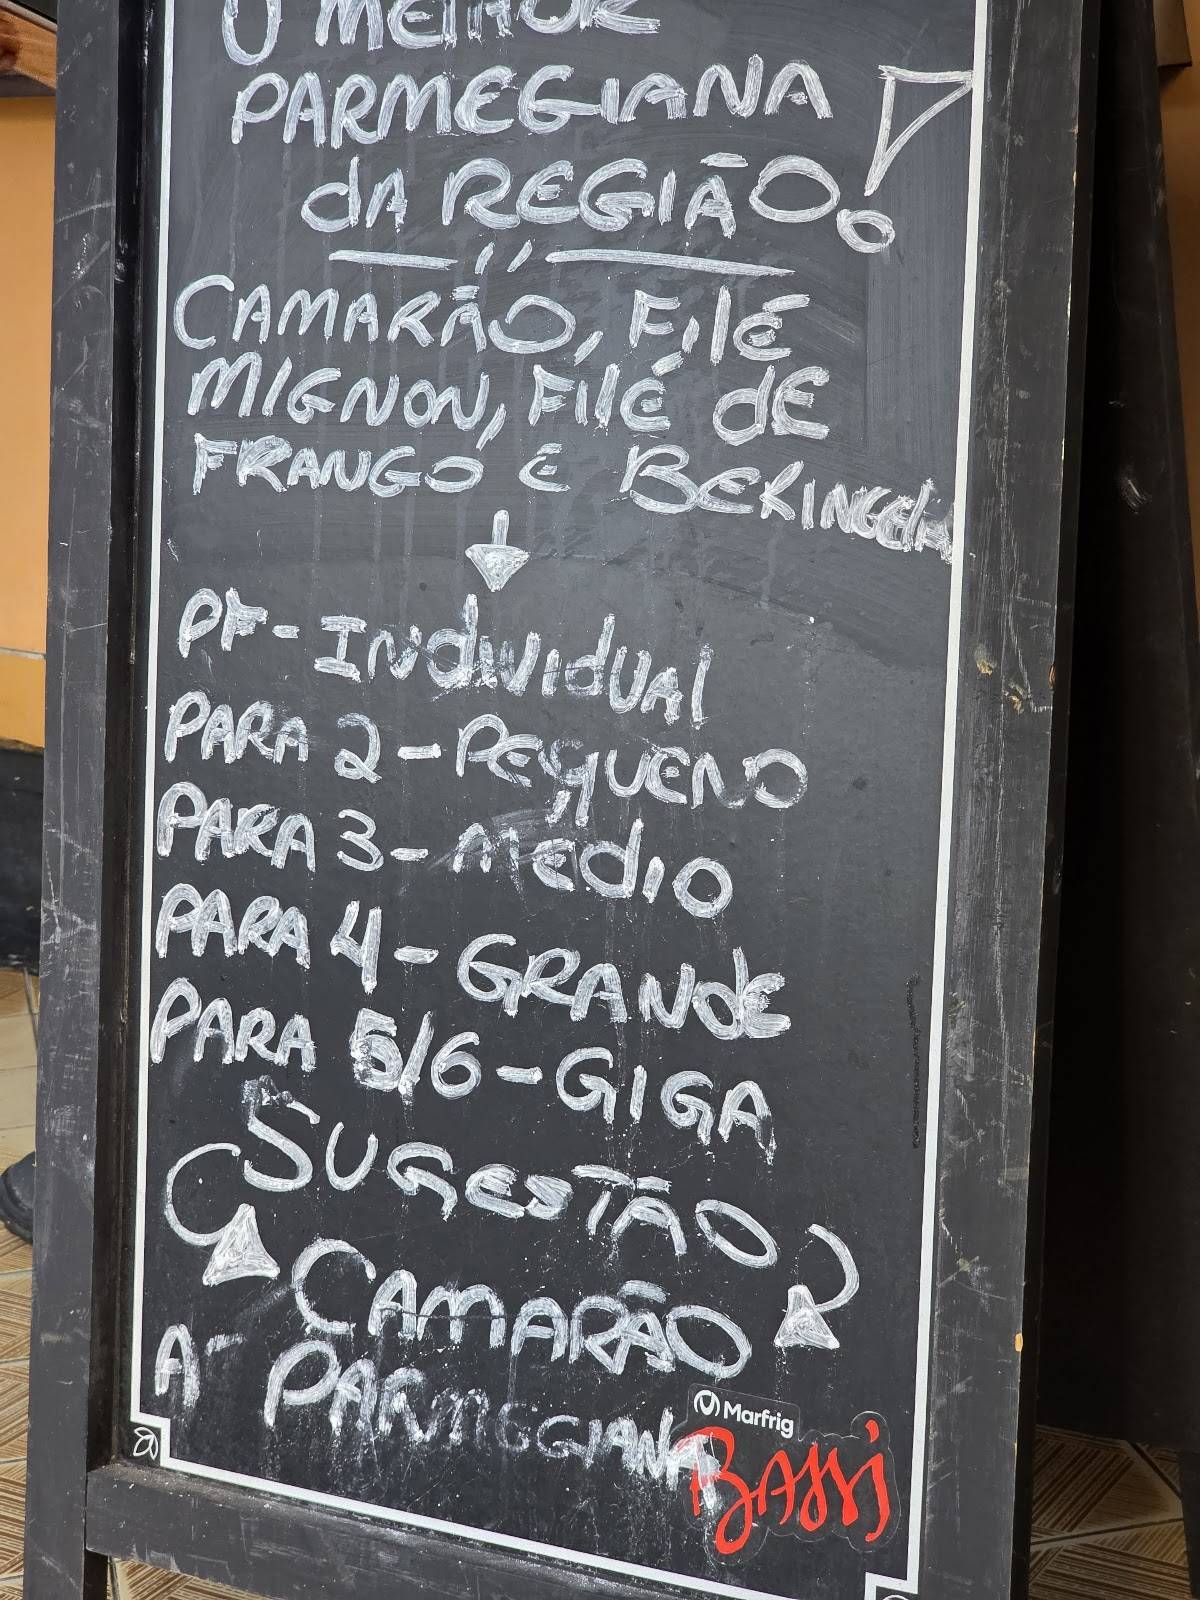 O MELHOR
PARMEGIANA
dA REGIÃO!
CAMARÃO, FilÉ
MIGNON, FilÉ dE
FRANGO E BERINGELA
PF - INdIVIdUAl
PARA 2 - PEqUENO
PARA 3 - MEdIO
PARA 4 - GRANdE
PARA 5/6 - GIGA
SUGESTÃO
CAMARÃO
A PARMEGGIANA
Marfrig
BASSI